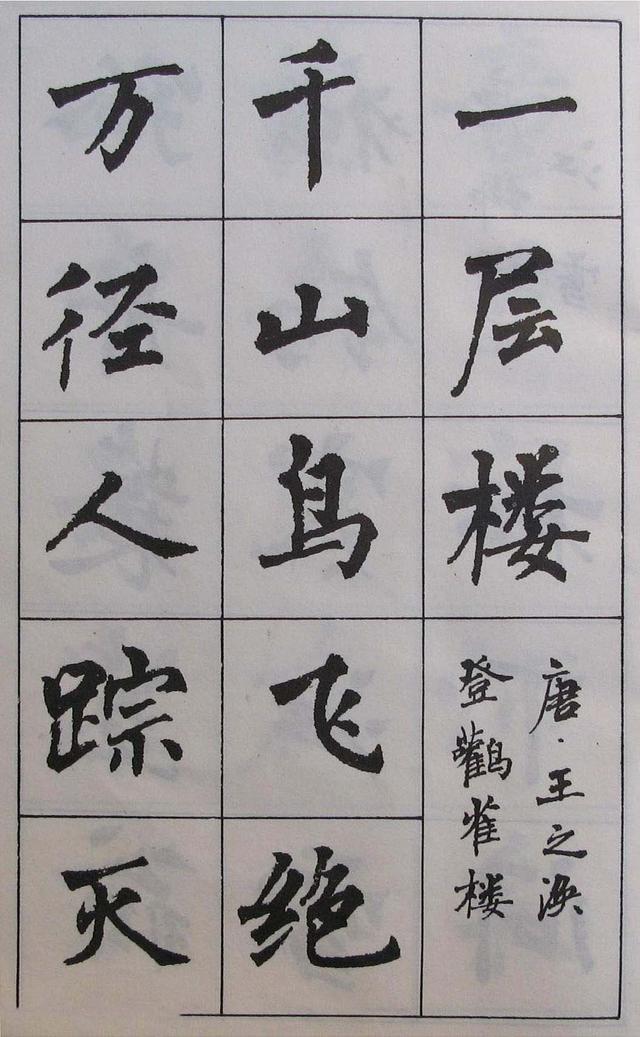 一层楼
唐·王之涣
登鹳雀楼
千山鸟飞绝
万径人踪灭